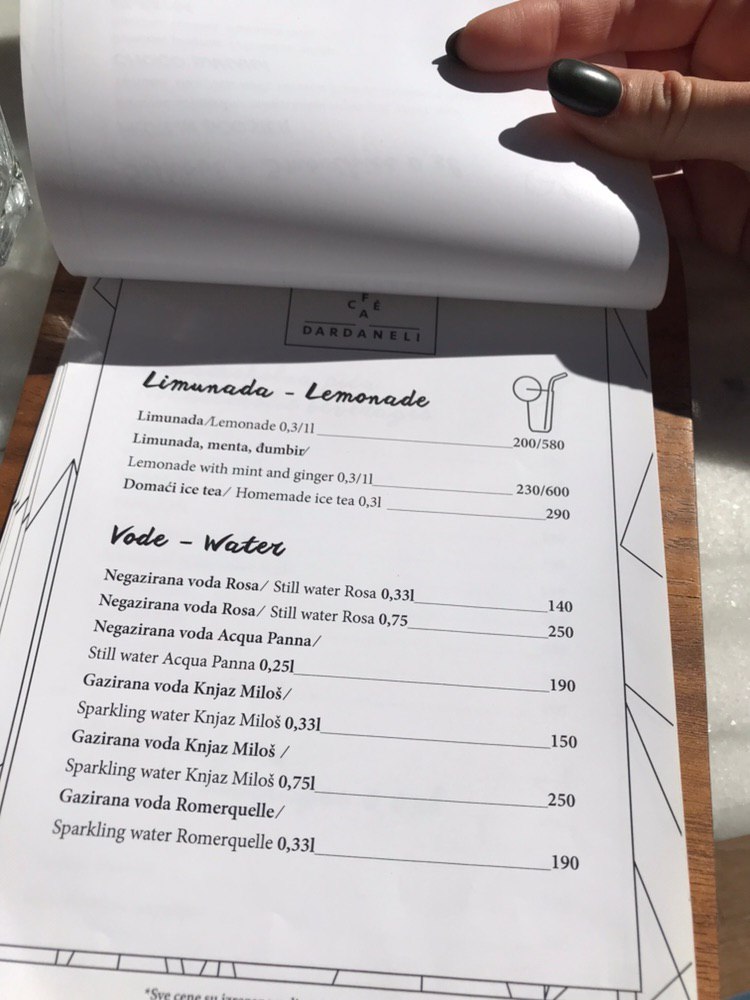 CAFÉ
DARDANELI
Limunada - Lemonade
Limunada/Lemonade 0,3/1l 200/580
Limunada, menta, đumbir/
Lemonade with mint and ginger 0,3/1l 230/600
Domaći ice tea/ Homemade ice tea 0,3l 290
Vode - Water
Negazirana voda Rosa/ Still water Rosa 0,33l 140
Negazirana voda Rosa/ Still water Rosa 0,75 250
Negazirana voda Acqua Panna/
Still water Acqua Panna 0,25l 190
Gazirana voda Knjaz Miloš/
Sparkling water Knjaz Miloš 0,33l 150
Gazirana voda Knjaz Miloš /
Sparkling water Knjaz Miloš 0,75l 250
Gazirana voda Romerquelle/
Sparkling water Romerquelle 0,33l 190
*Sve cene su